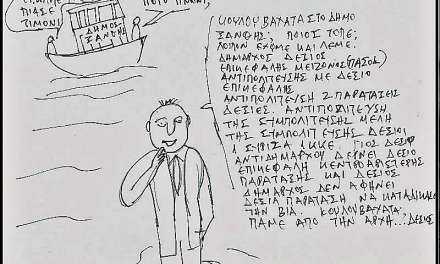 ΠΙΑΣΕ
ΤΙΜΟΝΙ
ΔΗΜΟΣ
ΞΑΝΘΗΣ
ΚΟΥΛΟΥΒΑΧΑΤΑ ΣΤΟ ΔΗΜΟ
ΞΑΝΘΗΣ; ΠΟΙΟΣ ΤΟΠΕ;
ΛΟΙΠΟΝ ΕΧΟΜΕ ΚΑΙ ΛΕΜΕ.
ΔΗΜΑΡΧΟΣ ΔΕΞΙΟΣ
ΕΠΙΚΕΦΑΛΗΣ ΜΕΙΖΟΝΟΣ (ΠΑΣΟΚ)
ΑΝΤΙΠΟΛΙΤΕΥΣΗΣ ΜΕ ΔΕΞΙΟ
ΕΠΙΚΕΦΑΛΗΣ
ΑΝΤΙΠΟΛΙΤΕΥΣΗ 2 ΠΑΡΑΤΑΞΕΙΣ
ΔΕΞΙΕΣ. ΑΝΤΙΠΟΛΙΤΕΥΣΗ
ΤΗΣ ΣΥΜΠΟΛΙΤΕΥΣΗΣ ΜΕΛΗ
ΤΗΣ ΣΥΜΠΟΛΙΤΕΥΣΗΣ ΔΕΞΙΟΙ
1 ΣΥΡΙΖΑ 1 ΚΚΕ. ΓΙΟΣ ΔΕΞΙΟΥ
ΑΝΤΙΔΗΜΑΡΧΟΥ ΔΕΡΝΕΙ ΔΕΞΙΟ
ΕΠΙΚΕΦΑΛΗ ΚΕΝΤΡΟΑΡΙΣΤΕΡΗΣ
ΠΑΡΑΤΑΞΗΣ ΚΑΙ ΔΕΞΙΟΣ
ΔΗΜΑΡΧΟΣ ΔΕΝ ΑΦΗΝΕΙ
ΔΕΞΙΑ ΠΑΡΑΤΑΞΗ ΝΑ ΚΑΤΑΔΙΚΑΣΕΙ
ΤΗΝ ΒΙΑ. ΚΟΥΛΟΥΒΑΧΑΤΑ;
ΠΑΜΕ ΑΠΟ ΤΗΝ ΑΡΧΗ... ΔΕΞΙΟΣ